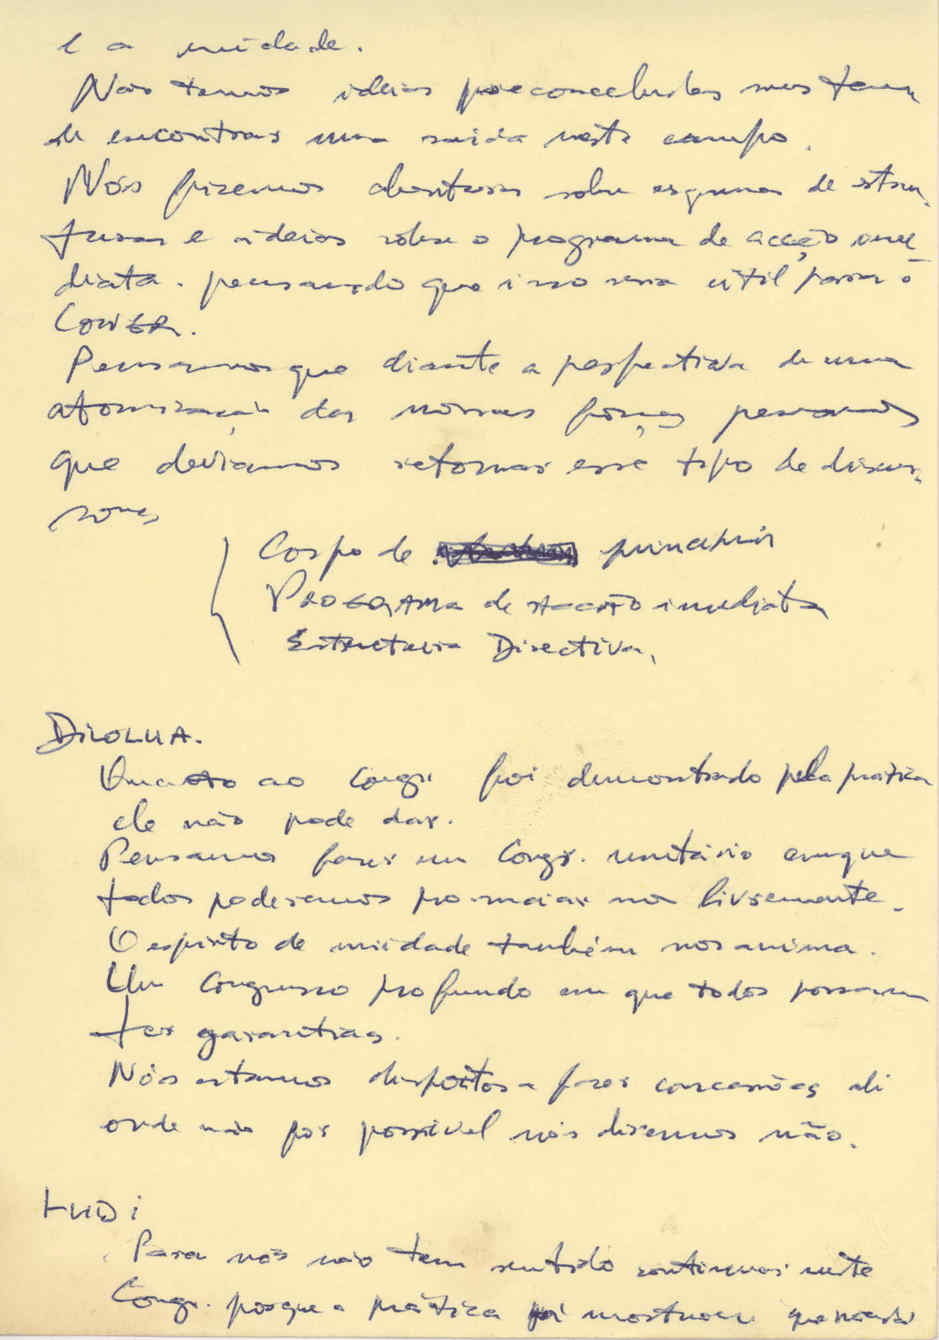 e a unidade.
Nós temos ideias preconcebidas mas temos
de encontrar uma saída neste campo.
Nós fizemos aberturas sobre esquemas de estru-
turas e ideias sobre o programa de acção ime
diata. pensando que isso era útil para o
CONGR.
Pensamos que diante a perspectiva de uma
atomização das nossas forças pensamos
que devíamos retomar esse tipo de discus-
sões
Corpo de princípios
PROGRAMA de Acção imediata
Estrutura Directiva.
DILOLUA.
Quanto ao Congr. foi demonstrado pela prática
ele não pode dar.
Pensamos fazer um Congr. unitário em que
todos poderemos pronunciar nos livremente.
O espírito de unidade também nos anima.
Um Congresso profundo em que todos possam
ter garantias.
Nós estamos dispostos a fazer concessões ali
onde não for possível nós diremos não.
LUDI
Para nós não tem sentido continuar neste
Congr. porque a prática já mostrou que não dá